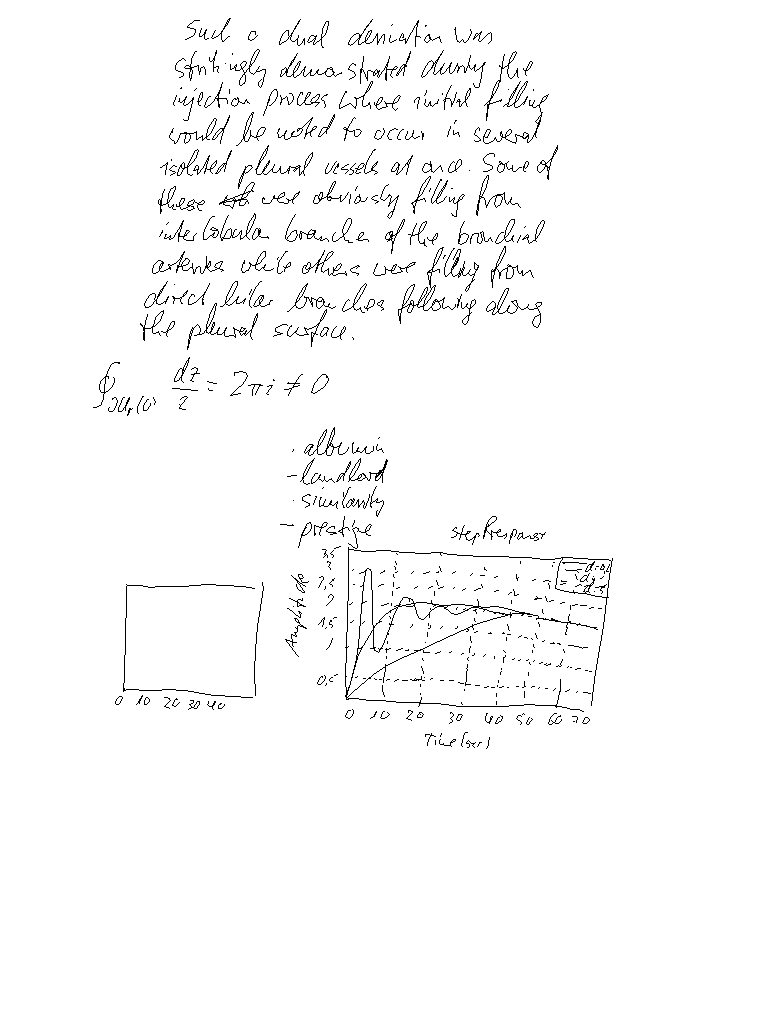 Such a dual derivation was
strikingly demonstrated during the
injection process where initial filling
would be noted to occur in several
isolated pleural vessels at once. Some of
these were obviously filling from
interlobular branches of the bronchial
arteries while others were filling from
direct hilar branches following along
the pleural surface.
∮∂Ur(0) dz/z = 2πi ≠ 0
· albumin
- landlord
· similarity
- prestige
Step Response
3,5
3
2,5
2
1,5
1
0,5
Amplitude
0 10 20 30 40 50 60 70
Time (sec)
0 10 20 30 40